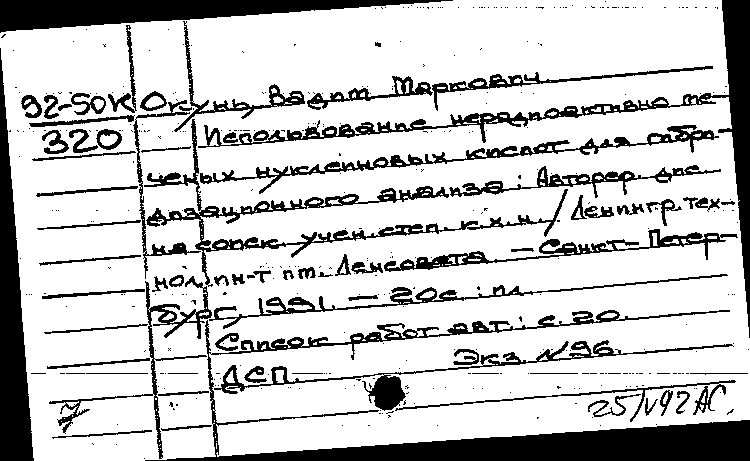 92-50К Окунь, Вадим Маркович.
320 Использование нерадиоактивно ме-
ченых нуклеиновых кислот для гибри-
дизационного анализа : Автореф. дис.
на соиск. учен. степ. к.х.н. / Ленингр. тех-
нол. ин-т им. Ленсовета. — Санкт-Петер-
бург, 1991. — 20с. : ил.
Список работ авт.: с. 20.
ДСП. Экз. №96.
25/V92 АС.